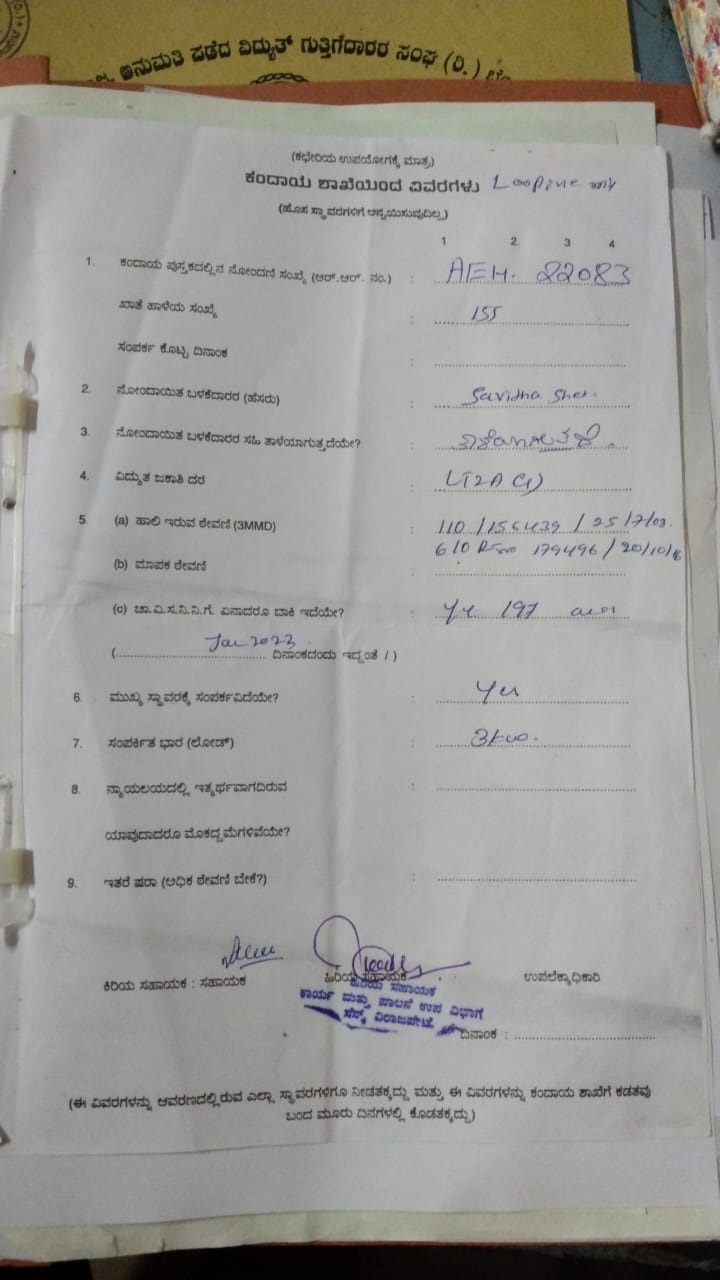 ಅನುಮತಿ ಪಡೆದ ವಿದ್ಯುತ್ ಗುತ್ತಿಗೆದಾರರ ಸಂಘ (ರಿ.)
(ಕಛೇರಿಯ ಉಪಯೋಗಕ್ಕೆ ಮಾತ್ರ)
ಕಂದಾಯ ಶಾಖೆಯಿಂದ ವಿವರಗಳು
(ಹೊಸ ಸ್ಥಾವರಗಳಿಗೆ ಅನ್ವಯಿಸುವುದಿಲ್ಲ)
1 2. 3 4
1. ಕಂದಾಯ ಪುಸ್ತಕದಲ್ಲಿನ ನೋಂದಣಿ ಸಂಖ್ಯೆ (ಆರ್.ಆರ್. ನಂ.) : AEH. 22083
ಖಾತೆ ಹಾಳೆಯ ಸಂಖ್ಯೆ : 155
ಸಂಪರ್ಕ ಕೊಟ್ಟ ದಿನಾಂಕ :
2. ನೋಂದಾಯಿತ ಬಳಕೆದಾರರ (ಹೆಸರು) : Savitha
3. ನೋಂದಾಯಿತ ಬಳಕೆದಾರರ ಸಹಿ ತಾಳೆಯಾಗುತ್ತದೆಯೇ? :
4. ವಿದ್ಯುತ ಜಕಾತಿ ದರ : LT2A
5 (a) ಹಾಲಿ ಇರುವ ಠೇವಣಿ (3MMD) : 110 / 156439 / 25/7/03.
179496 / 20/10/16
(b) ಮಾಪಕ ಠೇವಣಿ :
(c) ಚಾ.ವಿ.ಸ.ನಿ.ನಿ.ಗೆ. ಏನಾದರೂ ಬಾಕಿ ಇದೆಯೇ? : 197
(Jan 2023 ದಿನಾಂಕದಂದು ಇದ್ದಂತೆ / )
6. ಮುಖ್ಯ ಸ್ಥಾವರಕ್ಕೆ ಸಂಪರ್ಕವಿದೆಯೇ? : Yes
7. ಸಂಪರ್ಕಿತ ಭಾರ (ಲೋಡ್) : 3kw.
8. ನ್ಯಾಯಲಯದಲ್ಲಿ ಇತ್ಯರ್ಥವಾಗದಿರುವ :
ಯಾವುದಾದರೂ ಮೊಕದ್ದಮೆಗಳಿವೆಯೇ?
9. ಇತರೆ ಷರಾ (ಅಧಿಕ ಠೇವಣಿ ಬೇಕೆ?) :
ಕಿರಿಯ ಸಹಾಯಕ : ಸಹಾಯಕ ಹಿರಿಯ ಸಹಾಯಕ ಉಪಲೆಕ್ಕಾಧಿಕಾರಿ
ಹಿರಿಯ ಸಹಾಯಕ
ಕಾರ್ಯ ಮತ್ತು ಪಾಲನೆ ಉಪ ವಿಭಾಗ
ಸೆಸ್ಕ್ ವಿರಾಜಪೇಟೆ
ದಿನಾಂಕ :
(ಈ ವಿವರಗಳನ್ನು ಆವರಣದಲ್ಲಿರುವ ಎಲ್ಲಾ ಸ್ಥಾವರಗಳಿಗೂ ನೀಡತಕ್ಕದ್ದು ಮತ್ತು ಈ ವಿವರಗಳನ್ನು ಕಂದಾಯ ಶಾಖೆಗೆ ಕಡತವು
ಬಂದ ಮೂರು ದಿನಗಳಲ್ಲಿ ಕೊಡತಕ್ಕದ್ದು)